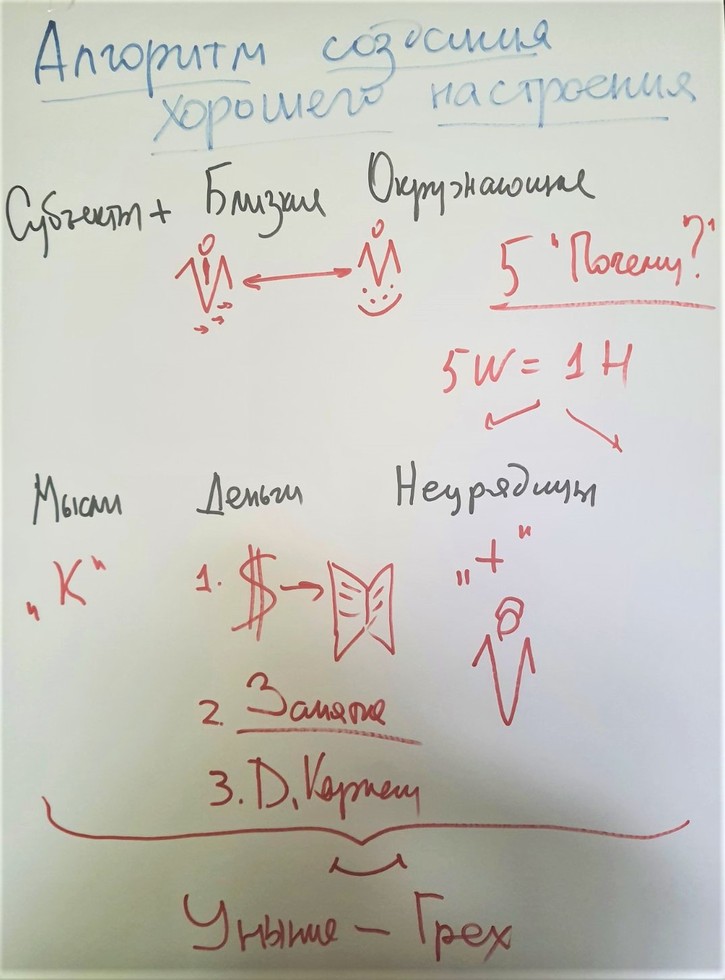 Алгоритм создания
хорошего настроения
Субъекты + Близкие Окружающие
5 "Почему"?"
5W = 1H
Мысли Деньги Неурядицы
„К" 1. $ „+"
2. Занятие
3. D. Карнеги
Уныние – Грех